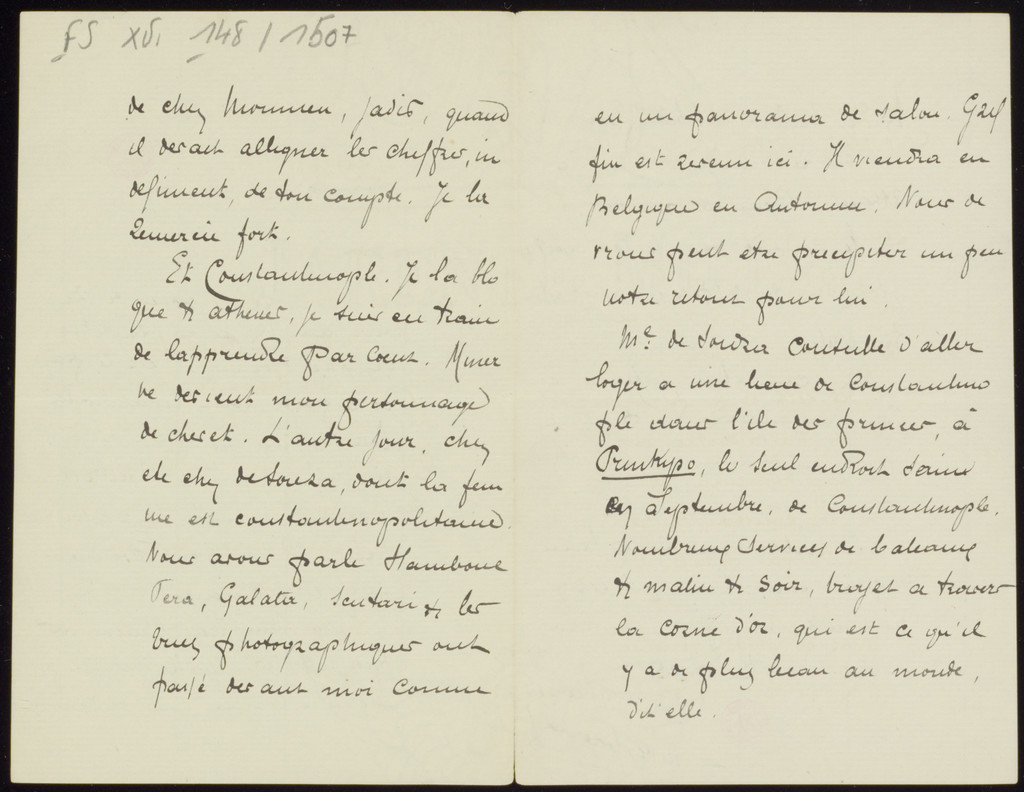 FS XVI 148 / 1507
de chez Monnieu, jadis, quand
il devait alligner les cheffres, in
definiment, de ton compte. Je les
remercie fort.
Et Constantinople. Je la blo
que & athenes, je suis en train
de lapprendre par Coeur. Miner
ve devient mon personnage
de chevet. L'autre jour, chez
ete chez de Souza, dont la fem
me est constantinopolitaine.
Nous avons parle Stamboul
Pera, Galata, Scutari & les
vues photographiques ont
passé devant moi comme
en un panorama de salon. Gräf
fin est revenu ici. Il viendra en
Belgique en Automne. Nous de
vrons peut etre precipiter un peu
notre retour pour lui.
Me. de Souza conseille d'aller
loger a une lieue de Constantino
ple dans l'ile des princes, à
Prinkypo, le seul endroit sain
en Septembre, de Constantinople.
Nombreux Services de bateaux
& matin & soir, trajet a travers
la corne d'or, qui est ce qu'il
y a de plus beau au monde,
dit elle.